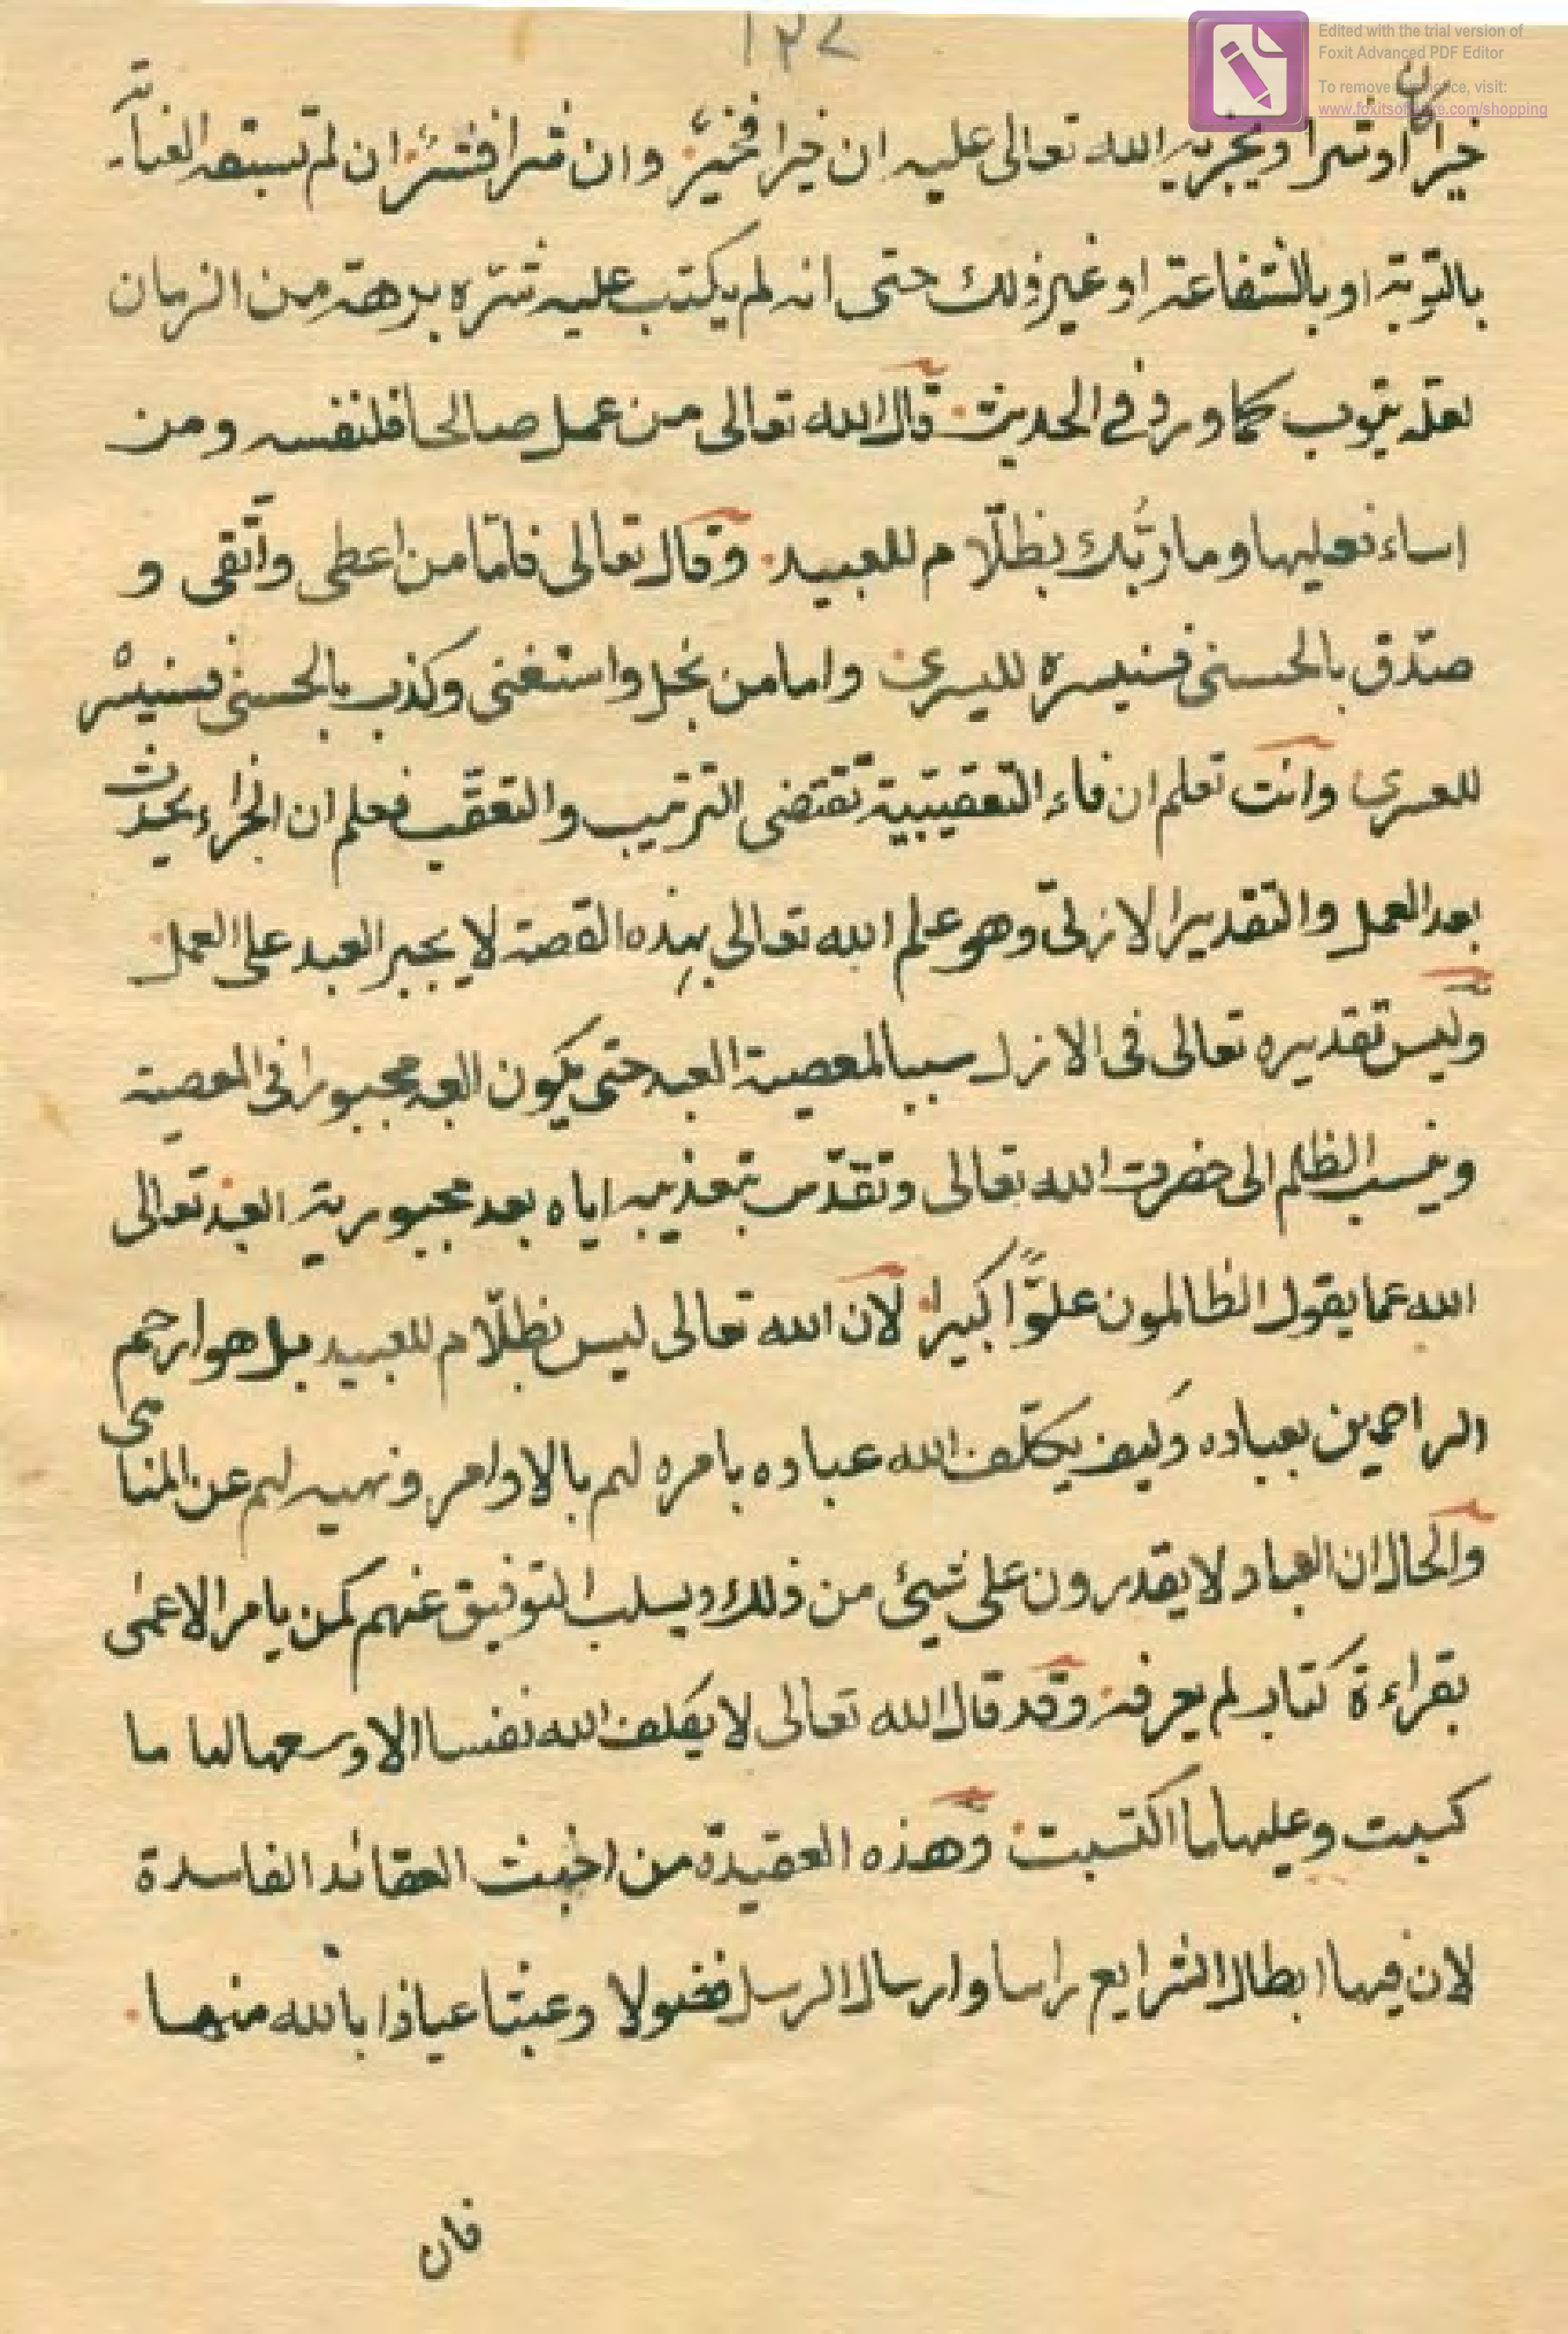 ١٣٧
Edited with the trial version of
Foxit Advanced PDF Editor
To remove this notice, visit:
www.foxitsoftware.com/shopping
خيرا كان او شرا ويجزيه الله تعالى عليه ان خيرا فخيرٌ وان شرا فشرٌ ان لم تستعد العناية
بالتوبة او بالشفاعة او غير ذلك حتى انه لم يكتب عليه شره برهة من الزمان
لعله يتوب كما ورد فى الحديث قال الله تعالى من عمل صالحا فلنفسه ومن
اساء فعليها وما ربُّك بظلّام للعبيد وقال تعالى فامّا من اعطى واتّقى و
صدّق بالحسنى فسنيسره لليسرى واما من بخل واستغنى وكذب بالحسنى فسنيسره
للعسرى وانت تعلم ان فاء التعقيبية تقتضى الترتيب والتعقّب فعلم ان الجزاء يحدث
بعد العمل والتقدير الازلىّ وهو علم الله تعالى بهذه القصة لا يجبر العبد على العمل
وليس تقديره تعالى فى الازل سببا لمعصية العبد حتى يكون العبد مجبورا فى المعصية
وينسب الظلم الى حضرت الله تعالى وتقدّس بتعذيبه اياه بعد مجبورية العبد تعالى
الله عما يقول الظالمون علوًّا كبيرا لان الله تعالى ليس بظلّام للعبيد بل هو ارحم
الراحمين بعباده وكيف يكلّف الله عباده بامره لهم بالاوامر ونهيه لهم عن المناهى
والحال ان العباد لا يقدرون على شيئ من ذلك ويسلب التوفيق عنهم كمن يامر الاعمى
بقراءة كتاب لم يعرفه وقد قال الله تعالى لا يكلف الله نفسا الا وسعها لها ما
كسبت وعليها ما اكتسبت وهذه العقيدة من اخبث العقائد الفاسدة
لان فيها ابطال الشرايع راسا وارسال الرسل فضولا وعبثا عياذا بالله منها
فان